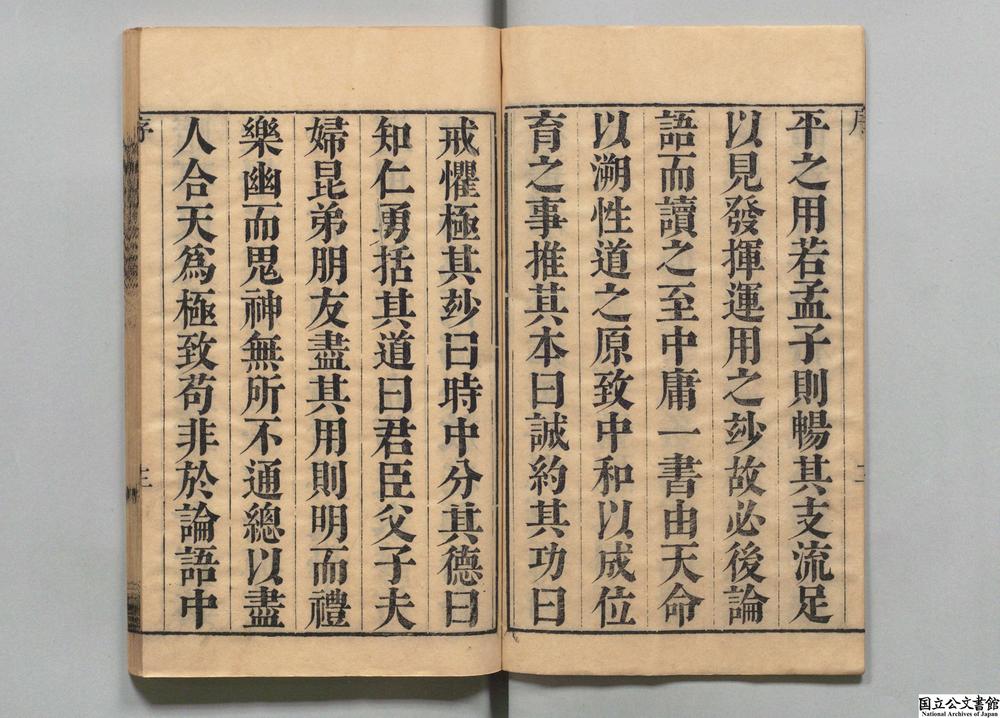 平之用若孟子則暢其支流足
以見發揮運用之玅故必後論
語而讀之至中庸一書由天命
以溯性道之原致中和以成位
育之事推其本曰誠約其功曰
戒懼極其玅曰時中分其德曰
知仁勇括其道曰君臣父子夫
婦昆弟朋友盡其用則明而禮
樂幽而鬼神無所不通總以盡
人合天爲極致苟非於論語中
序
国立公文書館
National Archives of Japan